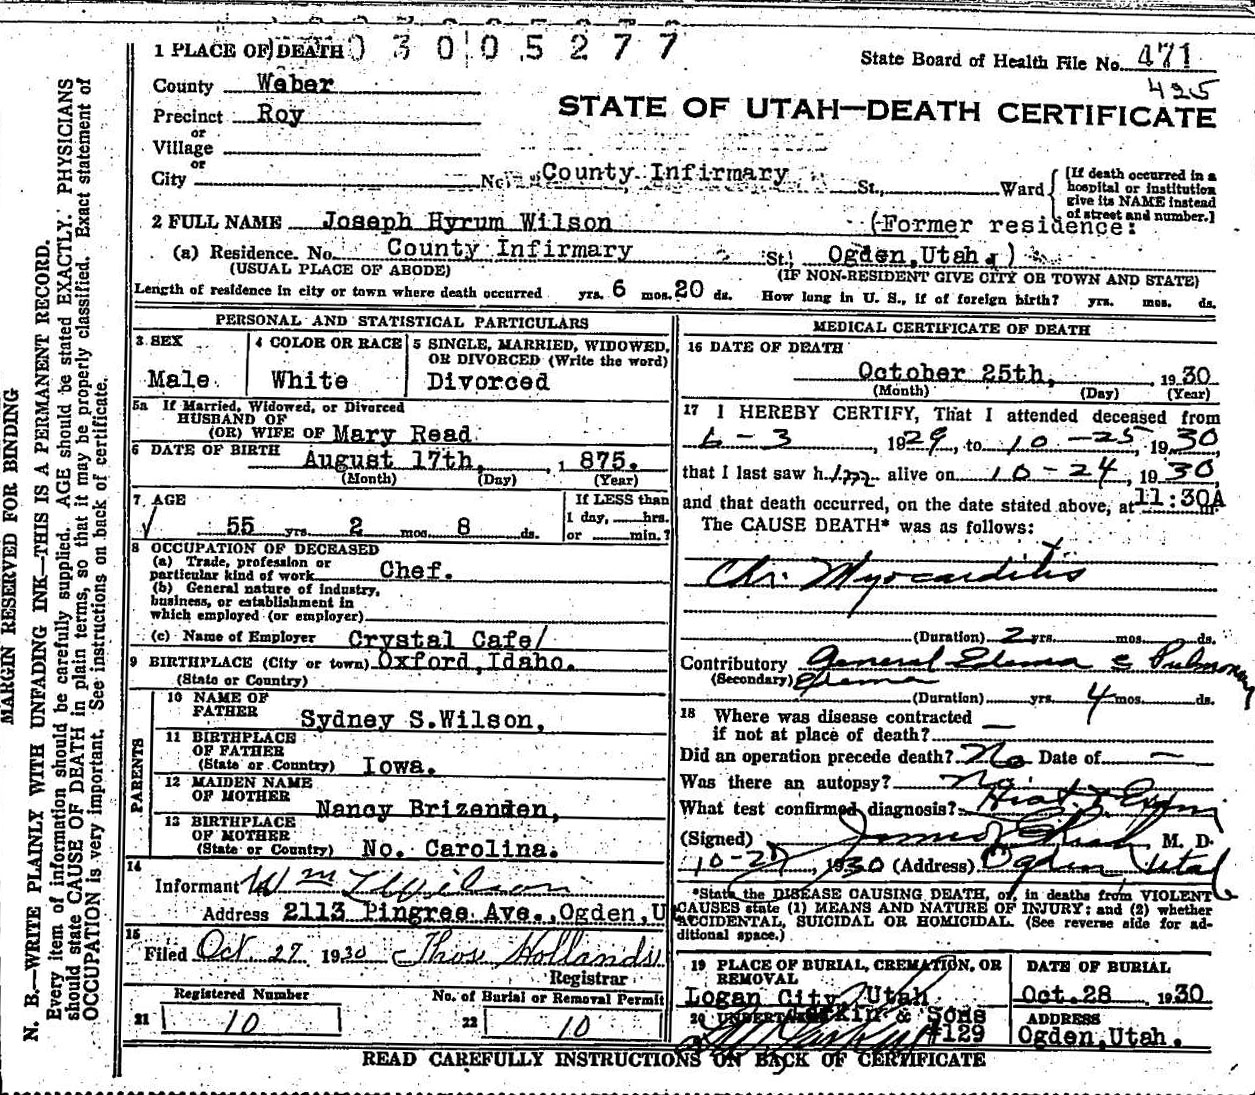 1 PLACE OF DEATH 0 3 0 0 5 2 7 7
State Board of Health File No. 471
425
County Weber
STATE OF UTAH—DEATH CERTIFICATE
Precinct Roy
or
Village
or
City No. County Infirmary St., Ward
[If death occurred in a
hospital or institution
give its NAME instead
of street and number.]
2 FULL NAME Joseph Hyrum Wilson (Former residence:
(a) Residence. No. County Infirmary St. Ogden, Utah.)
(USUAL PLACE OF ABODE) (IF NON-RESIDENT GIVE CITY OR TOWN AND STATE)
Length of residence in city or town where death occurred yrs. 6 mos. 20 ds. How long in U. S., if of foreign birth? yrs. mos. ds.
PERSONAL AND STATISTICAL PARTICULARS
3 SEX
Male
4 COLOR OR RACE
White
5 SINGLE, MARRIED, WIDOWED,
OR DIVORCED (Write the word)
Divorced
5a If Married, Widowed, or Divorced
HUSBAND OF
(OR) WIFE OF Mary Read
6 DATE OF BIRTH August 17th, , 1 875.
(Month) (Day) (Year)
7 AGE
55 yrs. 2 mos. 8 ds.
If LESS than
1 day, hrs.
or min.?
8 OCCUPATION OF DECEASED
(a) Trade, profession or
particular kind of work Chef.
(b) General nature of industry,
business, or establishment in
which employed (or employer)
(c) Name of Employer Crystal Cafe/
9 BIRTHPLACE (City or town) Oxford, Idaho.
(State or Country)
PARENTS
10 NAME OF
FATHER Sydney S. Wilson,
11 BIRTHPLACE
OF FATHER
(State or Country) Iowa.
12 MAIDEN NAME
OF MOTHER Nancy Brizenden,
13 BIRTHPLACE
OF MOTHER
(State or Country) No. Carolina.
14
Informant Wm Wilson
Address 2113 Pingree Ave., Ogden, U
15
Filed Oct. 27 1930 Thos Hollands
Registrar
Registered Number
21 10
No. of Burial or Removal Permit
22 10
MEDICAL CERTIFICATE OF DEATH
16 DATE OF DEATH
October 25th, , 1930
(Month) (Day) (Year)
17 I HEREBY CERTIFY, That I attended deceased from
6-3, 1929, to 10-25, 1930,
that I last saw him alive on 10-24, 1930,
and that death occurred, on the date stated above, at 11:30A m.
The CAUSE DEATH* was as follows:
Chr. Myocarditis
(Duration) 2 yrs. mos. ds.
Contributory General Edema c Pulmonary
(Secondary) Edema
(Duration) yrs. 4 mos. ds.
18 Where was disease contracted
if not at place of death? —
Did an operation precede death? No Date of —
Was there an autopsy? No
What test confirmed diagnosis? Hist &
(Signed) M. D.
10-27, 1930 (Address) Ogden, Utah
*State the DISEASE CAUSING DEATH, or, in deaths from VIOLENT
CAUSES state (1) MEANS AND NATURE OF INJURY; and (2) whether
ACCIDENTAL, SUICIDAL OR HOMICIDAL. (See reverse side for ad-
ditional space.)
19 PLACE OF BURIAL, CREMATION, OR
REMOVAL
Logan City, Utah
DATE OF BURIAL
Oct. 28 , 1930
20 UNDERTAKER Larkin & Sons
#129
ADDRESS
Ogden, Utah.
READ CAREFULLY INSTRUCTIONS ON BACK OF CERTIFICATE
MARGIN RESERVED FOR BINDING
N. B.—WRITE PLAINLY WITH UNFADING INK—THIS IS A PERMANENT RECORD.
Every item of information should be carefully supplied. AGE should be stated EXACTLY. PHYSICIANS
should state CAUSE OF DEATH in plain terms, so that it may be properly classified. Exact statement of
OCCUPATION is very important. See instructions on back of certificate.